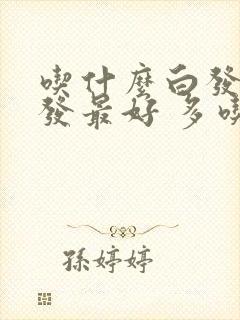 喫什麼白發
發最好 多喫
孫婷婷